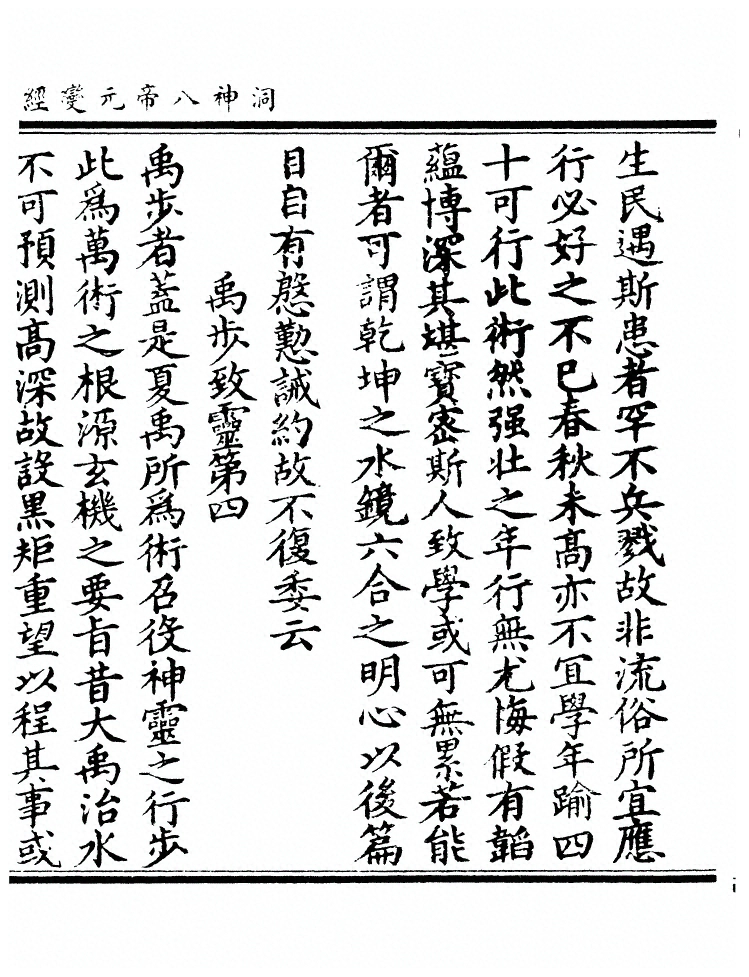 洞神八帝元變經
生民遇斯患者罕不兵戮故非流俗所宜應
行必好之不已春秋未高亦不冝學年踰四
十可行此術然强壯之年行無尤悔假有韜
蘊博深其堪寶宻斯人致學或可無累若能
爾者可謂乾坤之水鏡六合之明心以後篇
目自有慇懃誡約故不復委云
禹步致靈第四
禹步者蓋是夏禹所爲術召役神靈之行步
此爲萬術之根源玄機之要旨昔大禹治水
不可預測髙深故設黒矩重望以程其事或